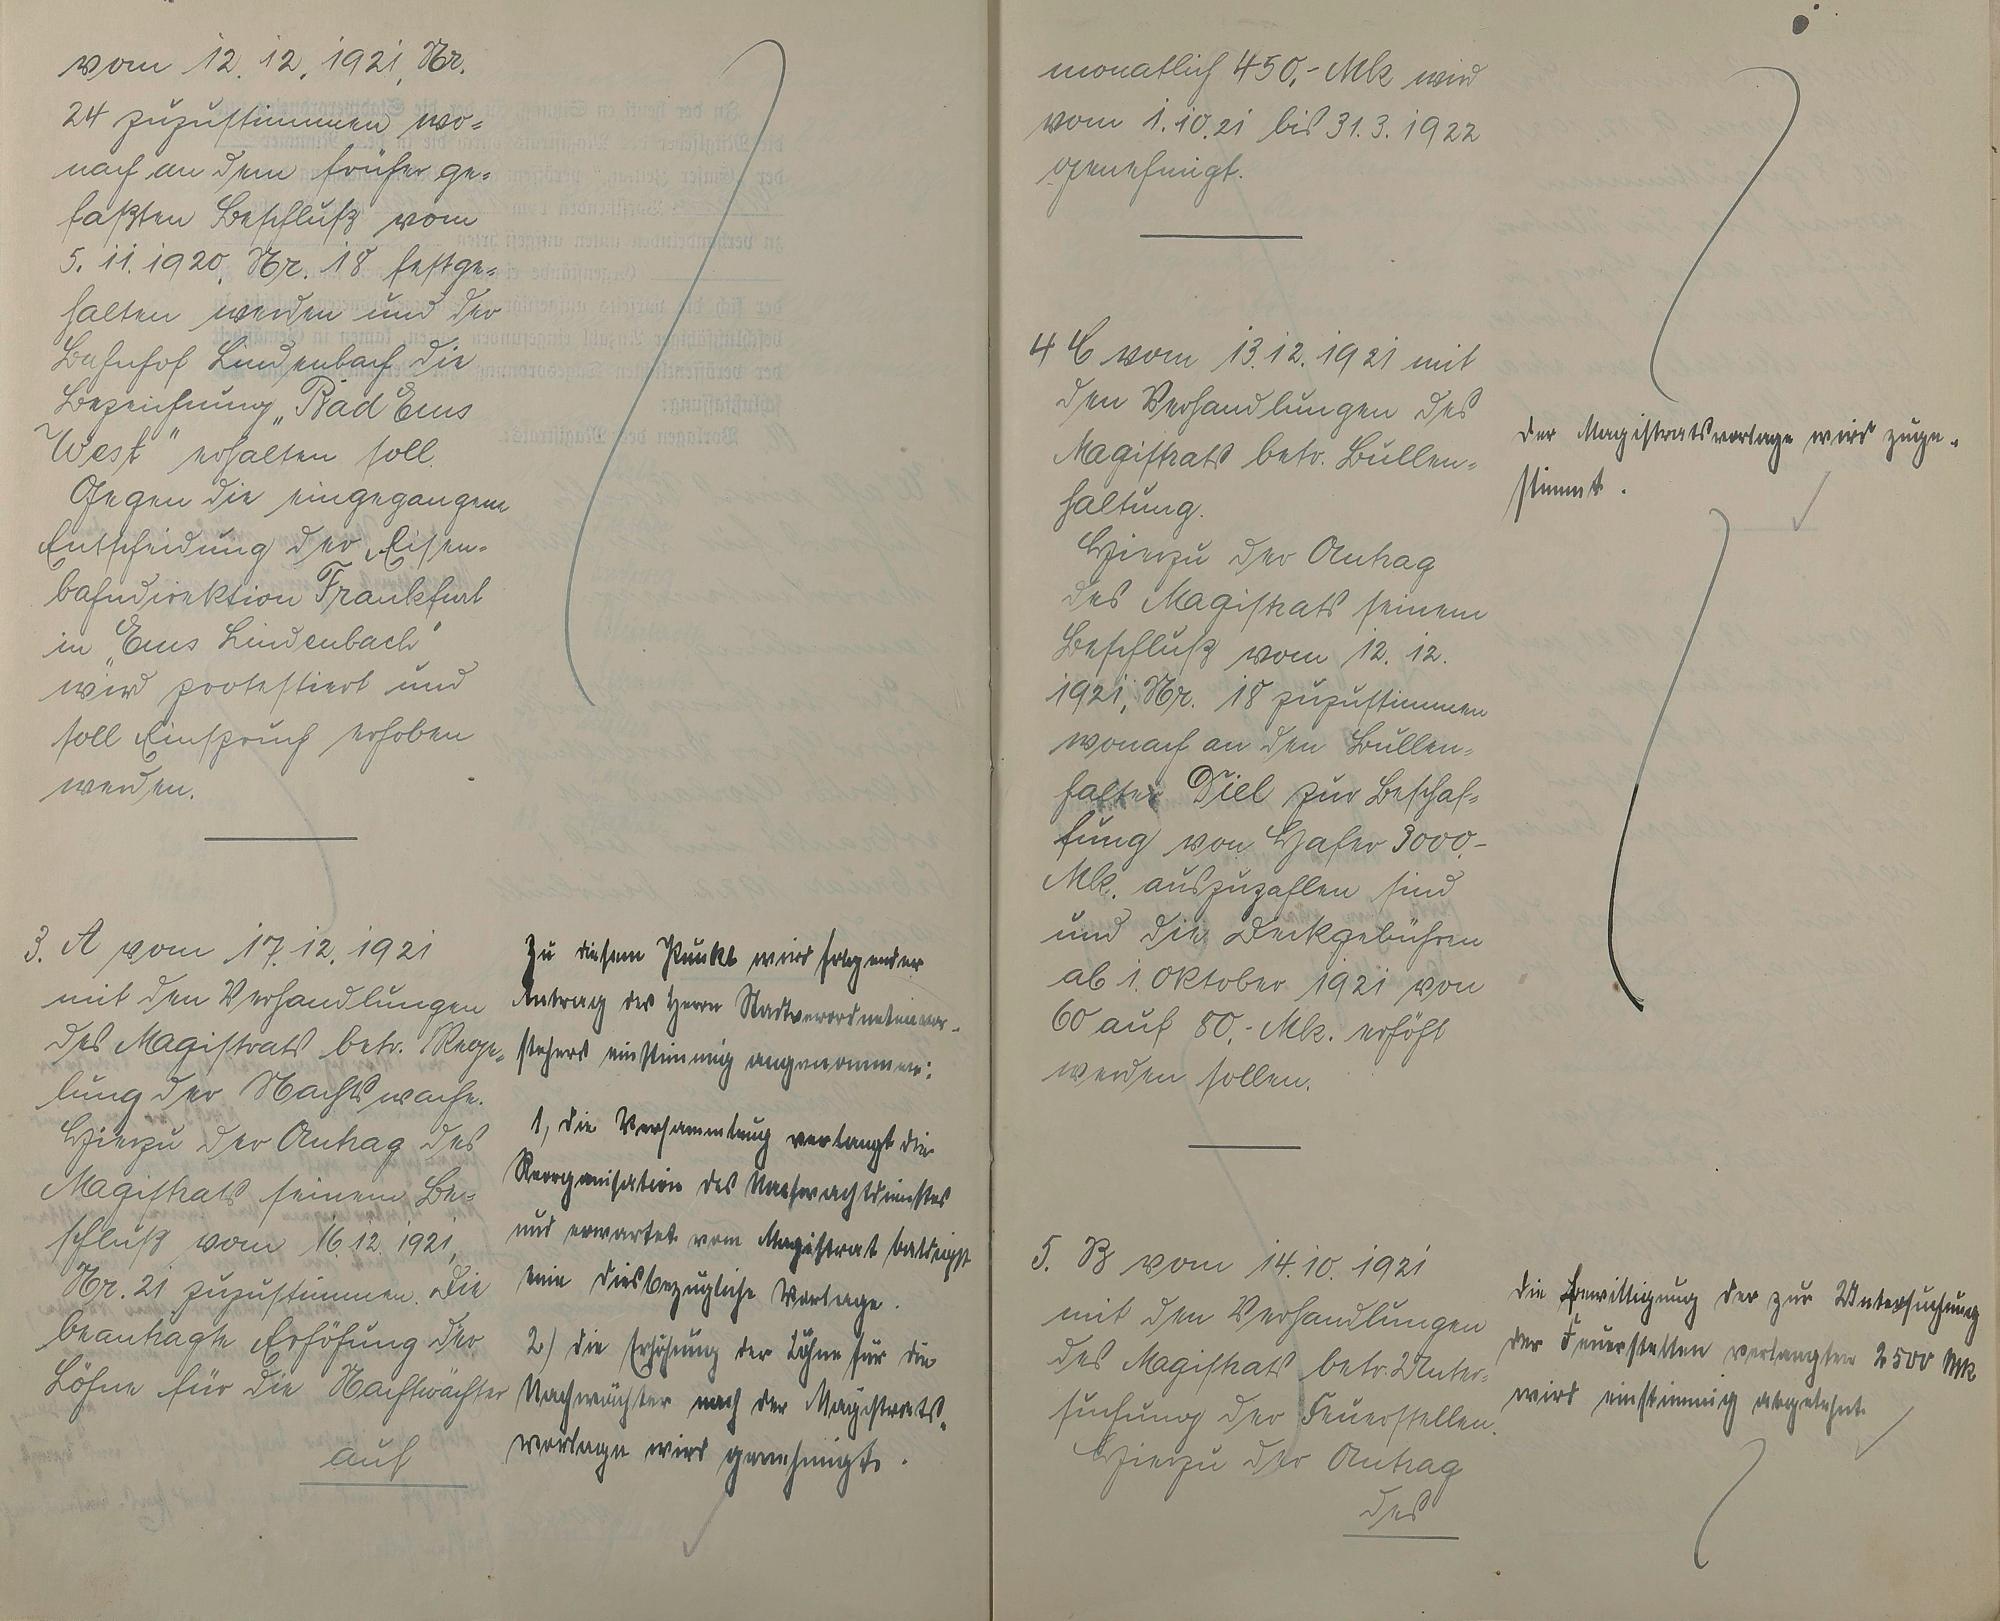 vom 12. 12. 1921, Nr.
24 zuzustimmen wo-
nach an dem früher ge-
faßten Beschluß vom
5. 11. 1920, Nr. 18 festge-
halten werden und der
Bahnhof Lindenbach die
Bezeichnung „Bad Ems
West" erhalten soll.
Gegen die eingegangene
Entscheidung der Eisen-
bahndirektion Frankfurt
in „Ems Lindenbach"
wird protestiert und
soll Einspruch erhoben
werden.
3. A vom 17. 12. 1921
mit den Verhandlungen
des Magistrats betr. Rege-
lung der Nachtswache.
Hierzu der Antrag des
Magistrats seinem Be-
schluß vom 16. 12. 1921,
Nr. 21 zuzustimmen. Die
beantragte Erhöhung der
Löhne für die Nachtwächter
auf
Zu diesem Punkt wird folgender
Antrag des Herrn Stadtverordnetenvor-
stehers einstimmig angenommen:
1, die Versammlung verlangt die
Reorganisation des Nachwachtdienstes
und erwartet vom Magistrat baldigst
eine diesbezügliche Vorlage.
2) die Erhöhung der Löhne für die
Nachwächter nach der Magistrats-
vorlage wird genehmigt.
monatlich 450,- Mk wird
vom 1. 10. 21 bis 31. 3. 1922
genehmigt.
4 C vom 13. 12. 1921 mit
den Verhandlungen des
Magistrats betr. Bullen-
haltung.
Hierzu der Antrag
des Magistrats seinem
Beschluß vom 12. 12.
1921, Nr. 18 zuzustimmen
wonach an den Bullen-
halter Diel zur Beschaf-
fung von Hafer 3000,-
Mk. auszuzahlen sind
und die Deckgebühren
ab 1. Oktober 1921 von
60 auf 80,- Mk. erhöht
werden sollen.
Der Magistratsvorlage wird zuge-
stimmt.
5. B vom 14. 10. 1921
mit den Verhandlungen
des Magistrats betr. Unter-
suchung der Feuerstellen.
Hierzu der Antrag
des
Die Bewilligung der zur Untersuchung
der Feuerstellen verlangten 2500 Mk
wird einstimmig abgelehnt.